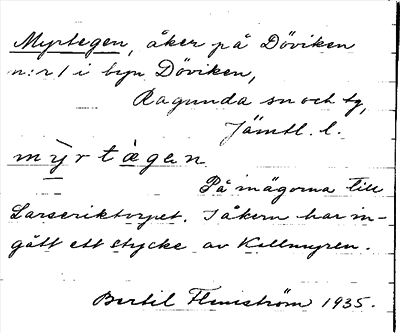 Myrtegen, åker på Döviken
n:r 1 i byn Döviken,
Ragunda sn och tg,
Jämtl. l.
mỳrtàgen
På inägorna till
Larseriktorpet. I åkern har in-
gått ett stycke av Källmyren.
Bertil Flemström 1935.